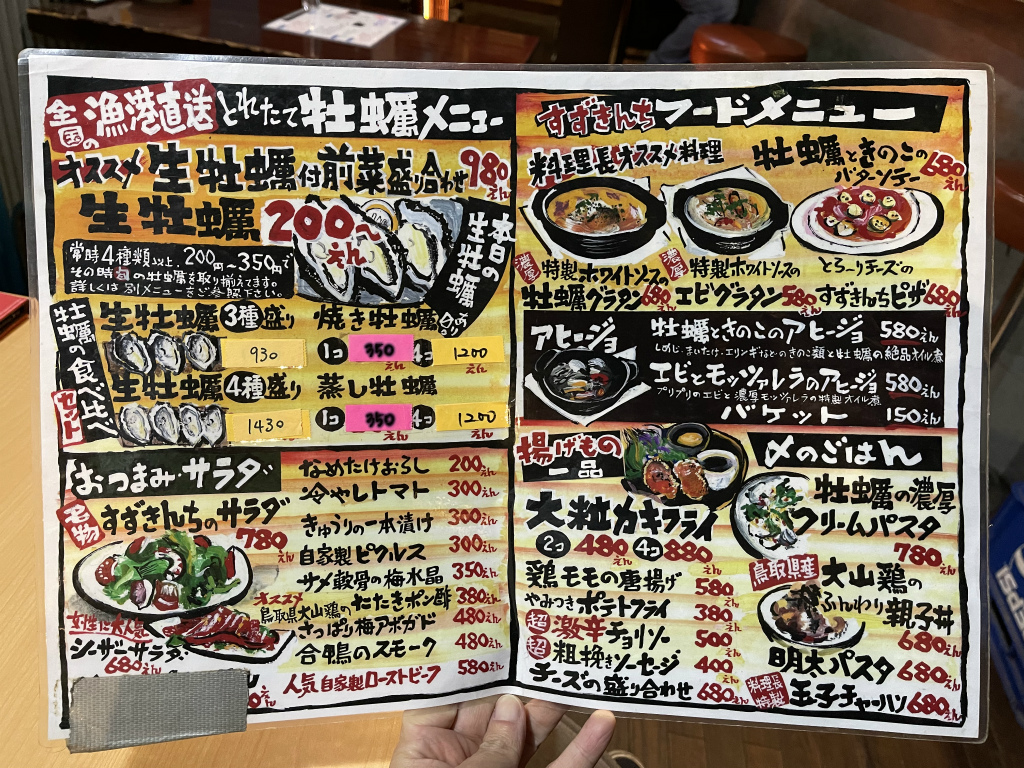 全国の漁港直送とれたて牡蠣メニュー
オススメ生牡蠣付前菜盛り合わせ980えん
生牡蠣200えん〜
本日の生牡蠣
常時4種類以上、200円〜350円で
その時旬の牡蠣を取り揃えてます。
詳しくは別メニューをご参照下さい。
牡蠣の食べ比べセット
生牡蠣3種盛り
930
生牡蠣4種盛り
1430
えん
焼き牡蠣
1コ 350 4コ 1200
えん
蒸し牡蠣
1コ 350 4コ 1200
えん
おつまみ・サラダ
名物すずきんちのサラダ
780えん
女性に大人気
シーザーサラダ
680えん
なめたけおろし 200えん
冷やしトマト 300えん
きゅうりの一本漬け 300えん
自家製ピクルス 300えん
サメ軟骨の梅水晶 350えん
オススメ
鳥取県大山鶏のたたきポン酢 380えん
さっぱり梅アボガド 480えん
合鴨のスモーク 480えん
人気自家製ローストビーフ 580えん
すずきんちフードメニュー
料理長オススメ料理
牡蠣ときのこの
バターソテー
680えん
濃厚 特製ホワイトソースの
牡蠣グラタン680えん
濃厚 特製ホワイトソースの
エビグラタン580えん
とろ〜りチーズの
すずきんちピザ680えん
アヒージョ
牡蠣ときのこのアヒージョ 580えん
しめじ・まいたけ・エリンギなどのきのこ類と牡蠣の絶品オイル煮
エビとモッツァレラのアヒージョ 580えん
プリプリのエビと濃厚モッツァレラの特製オイル煮
バケット 150えん
揚げもの
一品
大粒カキフライ
2コ 480えん 4コ 880えん
鶏モモの唐揚げ 580えん
やみつきポテトフライ 380えん
超超激辛チョリソー 500えん
粗挽きソーセージ 400えん
チーズの盛り合わせ 680えん
〆のごはん
牡蠣の濃厚
クリームパスタ
780えん
鳥取県産 大山鶏の
ふんわり親子丼
680えん
明太パスタ 680えん
料理長特製 玉子チャーハン 680えん